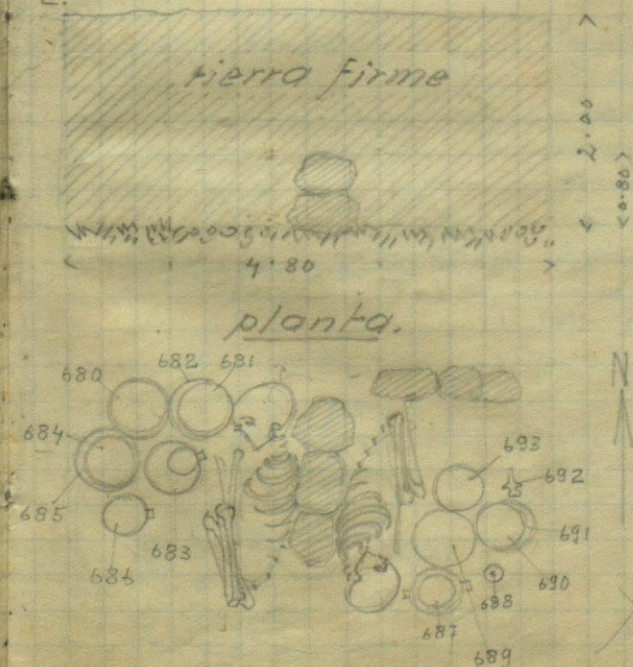 tierra firme
2.00
0.80
4.80
planta.
N
680
682
681
684
693
692
685
683
691
686
690
688
687
689